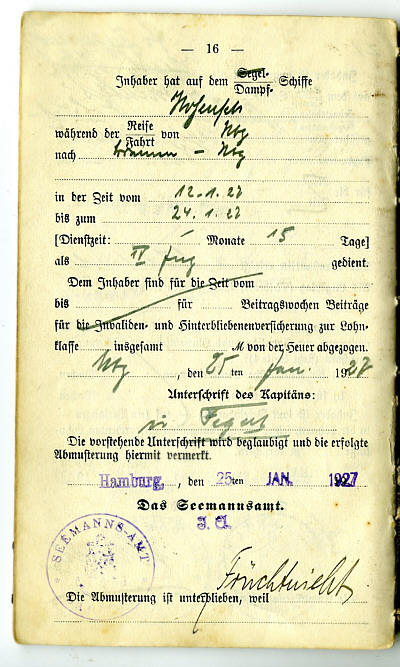 — 16 —
Inhaber hat auf dem Segel- Dampf- Schiffe
während der Reise Fahrt von Hbg
nach Bremen – Hbg
in der Zeit vom 12.1.27
bis zum 24.1.27
[Dienstzeit: / Monate 15 Tage]
als II Ing gedient.
Dem Inhaber sind für die Zeit vom
bis für Beitragswochen Beiträge
für die Invaliden- und Hinterbliebenenversicherung zur Lohn-
klasse insgesamt M von der Heuer abgezogen.
Hbg, den 25 ten Jan. 1927
Unterschrift des Kapitäns:
Die vorstehende Unterschrift wird beglaubigt und die erfolgte
Abmusterung hiermit vermerkt.
Hamburg, den 25 ten JAN. 1927
Das Seemannsamt.
J. A.
SEEMANNS-AMT
Die Abmusterung ist unterblieben, weil